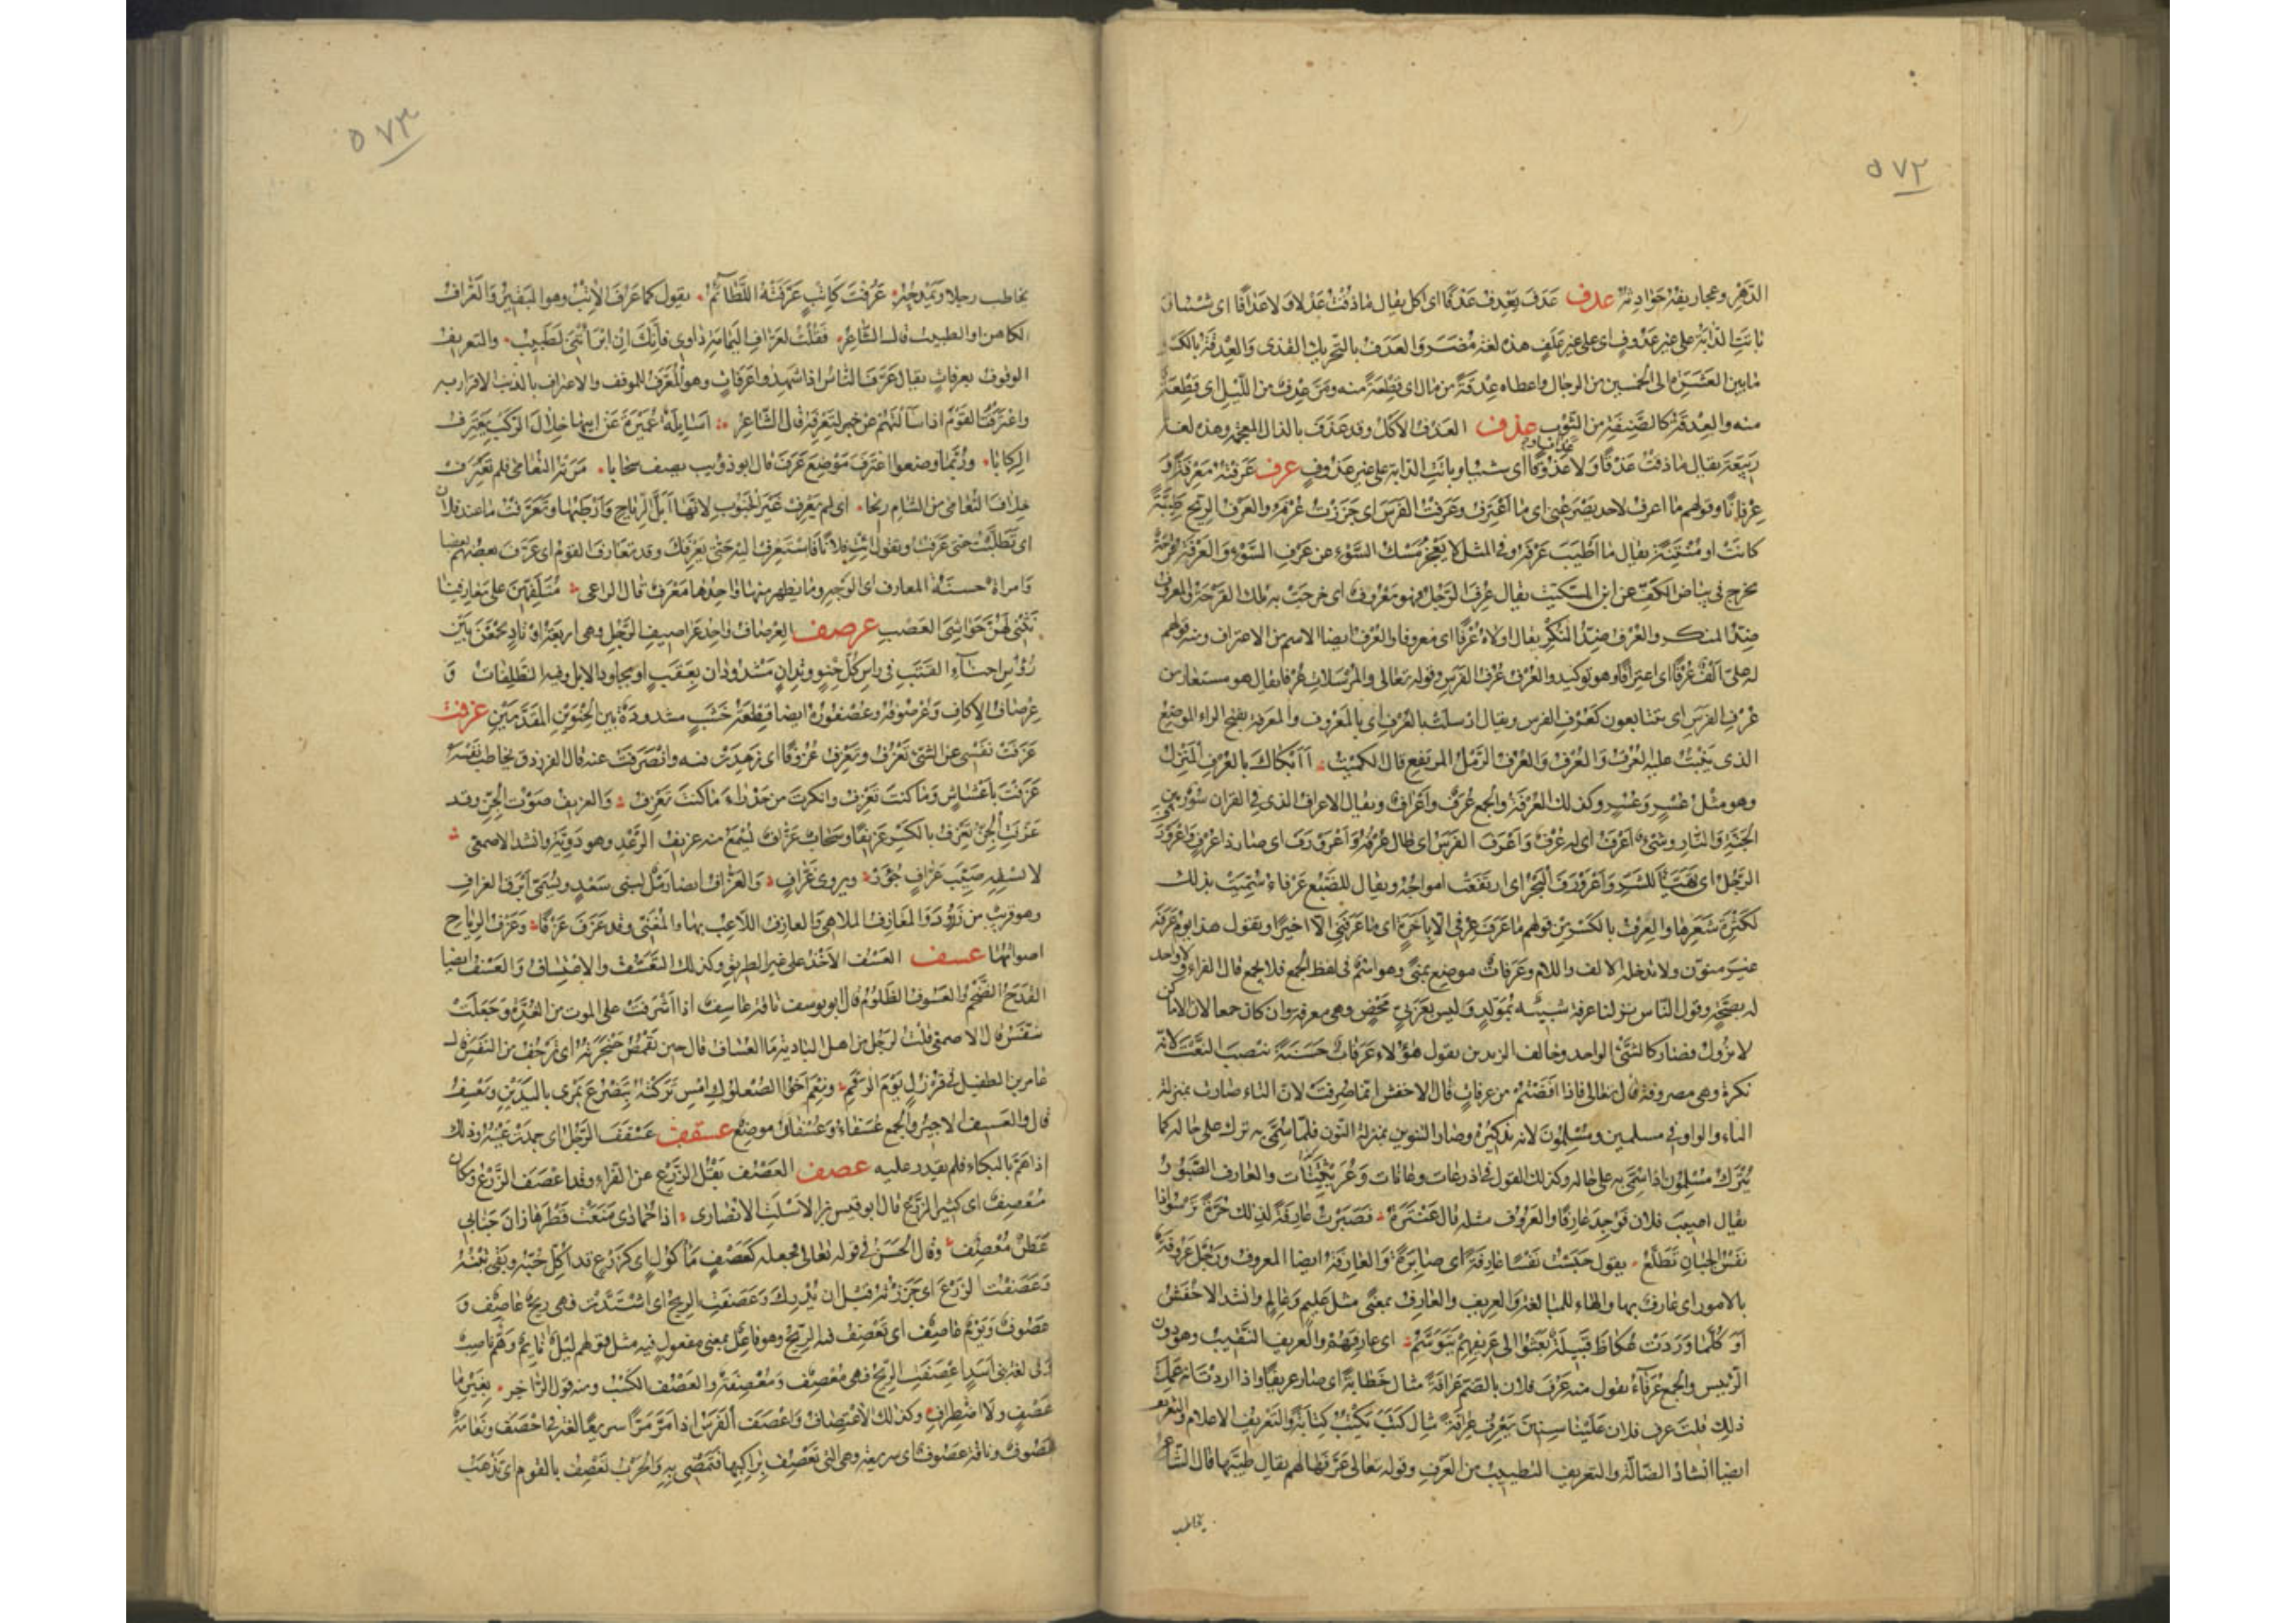 ٥٧٢
الدَّهْرِ وعجاريفُهُ حَوَادِثُهُ عدف عَدَفَ يَعْدِفُ عَدْفًا اى اكل يقال مَا ذُقْتُ عَدْفًا وَلا عَدَافًا اى شَيْئًا
باتَتِ الدَّابَّةُ على غير عَدُوفٍ اى على غير عَلَفٍ هذه لغة مُضَرَ وَالعَدَفُ بالتحريك القذى وَالعِدْفَةُ بالكسر
ما بين العَشَرَةِ الى الخمسين من الرجال واعطاه عِدْفَةً من مال اى قِطْعَةً منه ومَرَّ عِدْفٌ من اللَّيْلِ اى قِطْعَةٌ
منه والعِدْفَةُ كالصَّنِفَةِ من الثَّوْبِ عذف العَذْفُ الاكْلُ وقد عَذَفَ بالذال المعجمة وهذه لغة
رَبِيعَةَ يقال ما ذقتُ عَذْفًا وَلا عَذُوفًا اى شيئا وباتَتِ الدابة على غير عَذُوفٍ عرف عَرَفْتُهُ مَعْرِفَةً وَ
عِرْفانًا وقولهم ما اعرف لاحد يَصْرَعُنِى اى ما اَعْتَرِفُ وعَرَفْتُ الفَرَسَ اى جَزَزْتُ عُرْفَهُ والعَرْفُ الرِّيحُ طَيِّبَةً
كانَتْ او مُنْتِنَةً يقال ما اَطْيَبَ عَرْفَهُ وفى المثل لا يَعْجِزُ مَسْكُ السَّوْءِ عن عَرْفِ السَّوْءِ وَالعَرْفَةُ قُرْحَةٌ
تخرج فى بياض الكفّ عن ابن السكيت يقال عُرِفَ الرَّجُلُ فهو مَعْرُوفٌ اى خرجَتْ به تلك القرحَةُ والمعروف
ضِدُّ المنكر والعُرْفُ ضِدُّ النُّكْرِ يقال اولاهُ عُرْفًا اى معروفا والعُرْفُ ايضا الاسم من الاعتراف ومنه قولهم
له علىّ اَلْفٌ عُرْفًا اى اعتِرافًا وهو توكيد والعُرْفُ عُرْفُ الفَرَسِ وقوله تعالى والمُرْسَلاتِ عُرْفًا يقال هو مستعار من
عُرْفِ الفَرَسِ اى يتتابعون كعُرْفِ الفرس ويقال ارسلت بالعُرْفِ اى بالمَعْرُوفِ والمَعْرَفَةُ بفتح الراء الموضع
الذى يَنْبُتُ عليه العُرْفُ وَالعُرْفُ وَالعُرُفُ الرَّمْلُ المرتفع قال الكميت اَاَبْكَاكَ بالعُرُفِ المَنْزِلُ
وهو مثل عُسْرٍ وَعُسُرٍ وكذلك العُرْفَةُ والجمع عُرَفٌ واَعْرَافٌ ويقال الاعراف الذى فى القران سُورٌ بين
الجَنَّةِ وَالنَّارِ وشَىْءٌ اَعْرَفُ اى له عُرْفٌ وَاعْرَوْرَفَ الفَرَسُ اى طال عُرْفُهُ وَاعْرَوْرَفَ اى صار ذا عُرْفٍ وَاعْرَوْرَفَ
الرَّجُلُ اى تَهَيَّأَ للشَّرِّ وَاعْرَوْرَفَ البَحْرُ اى ارتَفَعَتْ امواجُهُ ويقال للضَّبُعِ عَرْفاءُ سُمِّيَتْ بذلك
لكَثْرَةِ شَعَرِها والعِرْفُ بالكسر من قولهم ما عَرَفَ عِرْفِى اِلّا بِاَخَرَةٍ اى ما عَرَفَنِى الّا اخيرًا ويقول هذا يوم عَرَفَةَ
غير منوّن ولا تدخله الالف واللام وعَرَفاتٌ موضع بمنًى وهو اسْمٌ فى لفظ الجمع فلا يجمع قال الفراء ولا واحد
له بصحّة وقول النّاس نزلنا عرفة شبيه بمُوَلَّدٍ وَليس بعَرَبِىٍّ مَحْضٍ وهى معرفة وان كان جمعا لان الاماكن
لا تزول فصار كالشَّىْءِ الواحد وخالف الزيدين يقول هؤلاء عَرَفاتٌ حَسَنَةً تنصب النَّعْتَ لانّه
نكرة وهى مصروفة قال تعالى فاذا اَفَضْتُمْ من عرفاتٍ قال الاخفش انّما صُرِفَتْ لانّ التاء صارت بمنزلة
الياء والواو فى مسلمين ومُسْلِمُونَ لانه تذكيره وصار التنوين بمنزلة النّون فلمّا سُمِّىَ به ترك على حاله كما
يُتْرَكُ مُسْلِمُونَ اذا سُمِّىَ به على حاله وكذلك القول فى اذرعات وعانات وَعُرَيْتِنات والعارف الصَّبُورُ
يقال اصيب فلان فَوُجِدَ عارِفًا والعَرُوف مثله قال عَنْتَرَةُ فَصَبَرْتُ عَارِفَةً لذلك حُرَّةً تَرْسُو اذا
نَفْسُ الجَبانِ تَطَلَّعُ يقول حَبَسْتُ نَفْسًا عَارِفَةً اى صَابِرَةً وَالعَارِفَةُ ايضا المعروف ورجُلٌ عَرُوفَةٌ
بالامور اى عارف بها والهاء للمبالغة وَالعريف والعَارِفُ بمعنًى مثل عَلِيمٍ وعَالِمٍ وانشد الاخفش
اَوَ كُلَّمَا وَرَدَتْ عُكاظَ قَبِيلَةٌ بَعَثُوا الى عَرِيفِهِمْ يَتَوَسَّمُ اى عارِفَهُمْ والعريف النَّقِيبُ وهو دون
الرّئيس والجمع عُرَفَآءُ تقول منه عَرُفَ فلان بالضم عَرَافَةً مثال خَطَابَةً اى صار عريفًا واذا اردت انه عَمِلَ
ذلك قلتَ عرف فلان عَلَيْنا سِنِينَ يَعْرُفُ عِرافَةً مثال كَتَبَ يَكْتُبُ كِتَابَةً وَالتَّعْرِيفُ الاعلام والتعريف
ايضا انشاد الضّالّة والتعريف التطييب من العَرْفِ وقوله تعالى عَرَّفَها لهم يقال طَيَّبَها قال الشّاعر
يخاطب
٥٧٣
يخاطب رجلا ويَمْدَحُهُ عَرُفْتَ كَاتْبٍ عَرَّفَتْهُ اللَّطائمُ يقول كما عَرُفَ الاِتْبُ وهو البَقيرُ وَالعَرَّافُ
الكاهن او الطبيب قال الشّاعر فَقُلْتُ لعَرّافِ اليَمَامَةِ دَاوِنِى فَاِنَّكَ اِنْ ابْرَأْتَنِى لَطَبِيبُ والتعريف
الوقوف بعرفات يقال عَرَّفَ النَّاسُ اذا شَهِدُوا عَرَفاتٍ وهو المُعَرَّفُ للموقف والاعتراف بالذنب الاقرار به
واعْتَرَفْتُ القَوْمَ اذا سَاَلْتَهُمْ عن خبر لتَعْرِفَهُ قال الشّاعر اَسَائِلَةٌ عُمَيْرَةُ عَنْ ابيها خِلالَ الرَّكْبِ تَعْتَرِفُ
الرِّكَابَا ورُبَّمَا وضعوا اعْتَرَفَ مَوْضِعَ عَرَفَ قال ابو ذؤيب يصف سحابا مَرَتْهُ النُّعامَى فلم تَعْتَرِفْ
خِلافَ النُّعَامَى من الشَّامِ ريحَا اى لم تَعْرِفْ غَيْرَ الجَنُوبِ لانّها اَبَلُّ الرِّياحِ وَاَرْطَبُها وتَعَرَّفْتُ ما عند فلان
اى تَطَلَّبْتُ حتى عَرَفْتُ وتقول ائْتِ فلانًا فَاسْتَعْرِفْ اليه حَتَّى يَعْرِفَكَ وقد تعارَفَ القومُ اى عَرَفَ بعضُهم بعضا
وَامراة حسنة المعارف اى الوَجْهِ وما يظهر منها واحدُها مَعْرَفٌ قال الراعى مُتَلَفِّعِينَ على مَعارِفِنا
نَثْنِى لَهُنَّ حَوَاشِىَ العَصْبِ عرصف العِرْصَافُ وَاحِدُ عَرَاصيفِ الرَّحْلِ وهى اربعة اوتَادٍ يَجْمَعْنَ بَيْنَ
رُؤُسِ احنَآءِ القَتَبِ فى رَاسِ كُلِّ حِنْوٍ وتِدَانِ مَشْدُودَان بِعَقَبٍ او بجلود الابل وفيه الظَّلِفات وَ
عِرْصَافُ الاِكافِ وَعُرْصُوفُهُ وعُصْفُورُهُ ايضا قِطْعَةُ خَشَبٍ مشدودَةٌ بين الحِنْوَيْنِ المقَدَّمَيْنِ عزفت
عَزَفَتْ نفسى عن الشَّىْءِ تَعْزُفُ وتَعْزِفُ عُزُوفًا اى زهدَتْ فيه وانْصَرَفَتْ عنه قال الفرزدق يخاطب نَفْسَهُ
عَزَفْتَ بِاَعْشَاشٍ وَمَا كنتَ تَعْزِفُ وانكرتَ من حَدْرَاءَ مَا كنتَ تَعْرِفُ وَالعزيف صَوْتُ الجِنِّ وقد
عَزَفَتِ الجِنُّ تَعْزِفُ بالكسر عَزِيفًا وسَحَابٌ عَزَّافٌ يُسْمَعُ منه عزيف الرَّعْدِ وهو دَوِيُّهُ وانشد الاصمعى
لا تَسْقِهِ صَيِّبَ عَزَّافٍ جُؤَرْ ويروى غَرَّافٍ وَالعَزَّافُ ايضا رَمْلٌ لبنى سَعْدٍ ويُسَمَّى اَبْرَقَ العزافِ
وهو قريب من زَرُودَ وَالمعَازِفُ الملاهى وَالعازف اللاّعب بها والمُغَنِّى وقد عَزَفَ عَزْفًا وَعَزْفُ الرِّياحِ
اصواتُها عسف العَسْفُ الاَخْذُ على غير الطريق وكذلك التَّعَسُّفُ والاعْتِسافُ وَالعَسْفُ ايضا
القَدَحُ الضَّخْمُ والعَسُوفُ الظَّلُومُ قال ابو يوسف ناقة عاسِفٌ اذا اَشْرَفَتْ على الموت من الغُدَّةِ وَجَعَلَتْ
تَنَفَّسُ قال الاصمعى قلت لرَجُلٍ من اهل البادية ما العُسَافُ قال حين تَقْمُصُ حَنْجَرَتُهُ اى تَرْجُفُ من النَّفَسِ قال
عامر بن الطفيل فى قُرْزُلٍ يَوْمَ الرَّقَمِ ونِعْمَ اَخُو الصُّعْلُوكِ اَمْسِ تَرَكْتُهُ بِتَضْرُعَ يَمْرِى باليَدَيْنِ ويَعْسِفُ
قال والعَسيفُ الاجيرُ والجمع عُسَفَاءُ وَعُسْفَانُ موضِعٌ عسقف عَسْقَفَ الرَّجُلُ اى جمدَتْ عَيْنُهُ وذلك
اذا هَمَّ بالبكاء فلم يقدر عليه عصف العَصْفُ بَقْلُ الزَّرْعِ عن الفَرّاء وقد اعْصَفَ الزَّرْعُ ومكان
مُعْصِفٌ اى كثير الزَّرْعِ قال ابو قيس بن الاَسْلَتِ الانصارى اذا جُمادَى مَنَعَتْ قَطْرَها زَانَ جَنَابِى
عَطَنٌ مُعْصِفٌ وقال الحَسَنُ فى قوله تعالى فجعلهم كَعَصْفٍ مَأكُولٍ اى كزَرْعٍ قد اُكِلَ حَبُّهُ وبقى تِبْنُهُ
وَعَصَفْتُ الزَّرْعَ اى جَزَزْتُهُ قبل ان يُدْرِكَ وعَصَفَتِ الريحُ اى اشتَدَّتْ فهى ريحٌ عاصِفٌ وَ
عَصُوفٌ وَيَوْمٌ عاصِفٌ اى تَعْصِفُ فيه الرّيحُ وهو فاعِلٌ بمعنى مفعولٍ فيه مثل قولهم لَيْلٌ نائِمٌ وَهَمٌّ ناصِبٌ
وفى لغة بنى اَسَدٍ اَعْصَفَتِ الرّيحُ فهى مُعْصِفٌ ومُعْصِفَةٌ والعَصْفُ الكَسْبُ ومنه قول الرّاجز بِغَيْرِ ما
عَصْفٍ ولا اصْطِرَافِ وكذلك الاعْتِصَافُ وَاَعْصَفَ الفَرَسُ اذا مَرَّ مَرًّا سريعًا لغة فى اَحْصَفَ ونَعامَةٌ
عَصُوفٌ وناقة عصوفٌ اى سريعة وهى التى تَعْصِفُ بِرَاكبِها فتَمْضِى به وَالحَرْبُ تَعْصِفُ بالقوم اى تَذْهَبُ